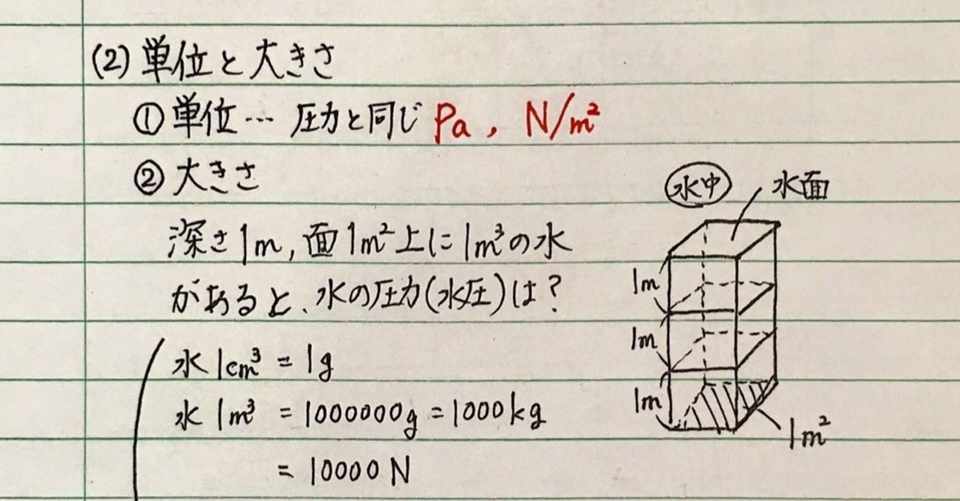 (2) 単位と大きさ
① 単位… 圧力と同じ Pa, N/m²
② 大きさ
深さ1m, 面1m²上に1m³の水
があると、水の圧力(水圧)は?
水1cm³ = 1g
水1m³ = 1000000g = 1000kg
= 10000N
水中
水面
1m
1m
1m
1m²